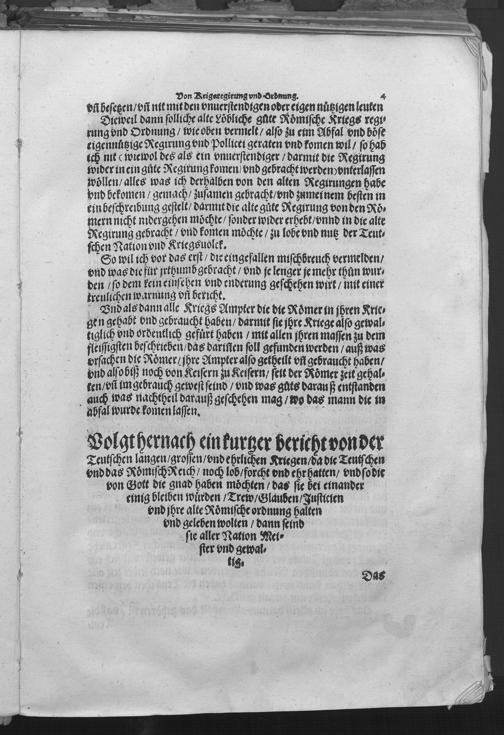 Von Krigsregirung vnd Ordnung. 4
vñ besetzen/vñ nit mit den vnuerstendigen oder eigen nützigen leuten
Dieweil dann solliche alte Löbliche güte Römische Kriegs regi-
rung vnd Ordnung/ wie oben vermelt/ also zu eim Abfal vnd böse
eigennützige Regirung vnd Pollicei geraten vnd komen wil/ so hab
ich nit (wiewol des als ein vnuerstendiger/ darmit die Regirung
wider in ein güte Regirung komen/ vnd gebracht werden/vnterlassen
wöllen/ alles was ich derhalben von den alten Regirungen habe
vnd bekomen/ gemach/ zusamen gebracht/ vnd zu meinem besten in
ein beschreibung gestelt/ darmit die alte güte Regirung von den Rö-
mern nicht nidergehen möchte/ sonder wider erhebt/ vnnd in die alte
Regirung gebracht/ vnd komen möchte/ zu lobe vnd nutz der Teut-
schen Nation vnd Kriegsuolck.
So wil ich vor das erst/ die eingefallen mischbreuch vermelden/
vnd was die für jrthumb gebracht/ vnd je lenger je mehr thün wur-
den/ so dem kein einsehen vnd enderung geschehen wirt/ mit einer
treulichen warnung vñ bericht.
Vnd als dann alle Kriegs Ampter die die Römer in jhren Krie-
gen gehabt vnd gebraucht haben/ darmit sie jhre Kriege also gewal-
tiglich vnd ordentlich gefürt haben/ mit allen jhren massen zu dem
fleissigsten beschrieben/ das darinen soll gefunden werden/ auß was
vrsachen die Römer/ jhre Ampter also getheilt vñ gebraucht haben/
vnd also biß noch von Keisern zu Keisern/ seit der Römer zeit gehal-
ten/vñ im gebrauch gewest seind/ vnd was güts darauß entstanden
auch was nachtheil darauß geschehen mag/ wo das mann die in
abfal wurde komen lassen.
Volgt hernach ein kurtzer bericht von der
Teutschen langen/ grossen/ vnd ehrlichen Kriegen/ da die Teutschen
vnd das Römisch Reich/ noch lob/ forcht vnd ehr hatten/ vnd so die
von Gott die gnad haben möchten/ das sie bei einander
einig bleiben würden/ Trew/ Glauben/ Justicien
vnd jhre alte Römische ordnung halten
vnd geleben wolten/ dann seind
sie aller Nation Mei-
ster vnd gewal-
tig.
Das